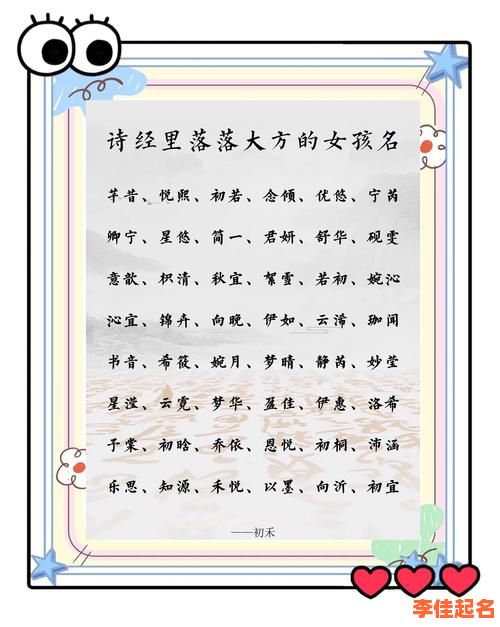 诗经里落落大方的女孩名
芊昔、悦熙、初若、念倾、优悠、宁芮
卿宁、星悠、简一、君妍、舒华、砚雯
意歆、枳清、秋宜、絮雪、若初、婉沁
沁宜、锦卉、向晚、伊如、云浠、珈闻
书音、希筱、婉月、梦晴、静芮、妙莹
星滢、云霓、梦华、盈佳、伊惠、洛希
予棠、初晗、乔依、恩悦、初桐、沛涵
乐思、知源、禾悦、以墨、向沂、初宜
——初禾
李佳起名